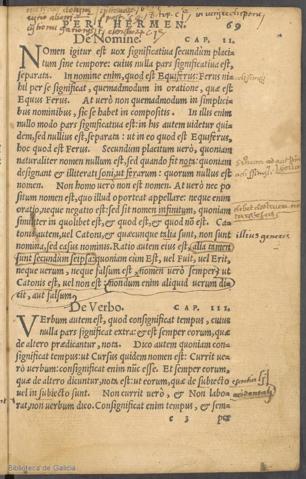 PERIHERMEN. 69
De Nomine. CAP. II.
Nomen igitur est uox significatiua secundum placi
tum sine tempore: cuius nulla pars significatiua est,
separata. In nomine enim, quod est Equiferus: Ferus ni
hil per se significat, quemadmodum in oratione, quæ est
Equus Ferus. At uerò non quemadmodum in simplici
bus nominibus, sic se habet in compositis. In illis enim
nullo modo pars significatiua est: in his autem uidetur qui
dem, sed nullius est, separata: ut in eo quod est Equiferus,
hoc quod est Ferus. Secundum placitum uerò, quoniam
naturaliter nomen nullum est, sed quando fit nota: quoniam
designant & illiterati soni, ut ferarum: quorum nullus est
nomen. Non homo uerò non est nomen. At uerò nec po
situm nomen est, quo illud oporteat appellare: neque enim
oratio, neque negatio est: sed sit nomen infinitum, quoniam
similiter in quolibet est, & quod est, & quod nō est. Ca-
tonis autem, uel Catoni, & quæcunque talia sunt, non sunt
nomina, sed casus nominis. Ratio autem eius est, alia tamen
sunt secundum seipsa: quoniam cùm Est, uel Fuit, uel Erit,
neque uerum, neque falsum est, nomen uerò semper: ut
Catonis est, uel non est: nondum enim aliquid uerum di-
cit, aut falsum.
De Verbo. CAP. III.
Verbum autem est, quod consignificat tempus, cuius
nulla pars significat extra: & est semper eorum, quæ
de altero prædicantur, nota. Dico autem quoniam con-
significat tempus: ut Cursus quidem nomen est: Currit ue-
rò uerbum: consignificat enim nūc esse. Et semper eorum,
quæ de altero dicuntur, nota est: ut eorum, quæ de subiecto
uel in subiecto sunt. Non currit uerò, & Non labo-
rat, non uerbum dico. Consignificat enim tempus, & sem-
c 3 per
illius generis
Biblioteca de Galicia